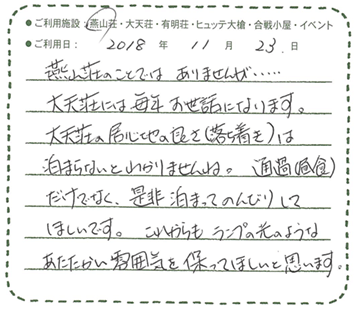 ●ご利用施設：燕山荘・大天荘・有明荘・ヒュッテ大槍・合戦小屋・イベント
●ご利用日： 2018 年 11 月 23 日
燕山荘のことでは ありませんが……
大天荘には毎年 お世話になります。
大天荘の居心地の良さ(落ち着き)は
泊まらないとわかりませんね。 通過(昼食)
だけでなく、是非 泊まってのんびりして
ほしいです。 これからも ランプの光のような
あたたかい雰囲気を 保ってほしいと思います。